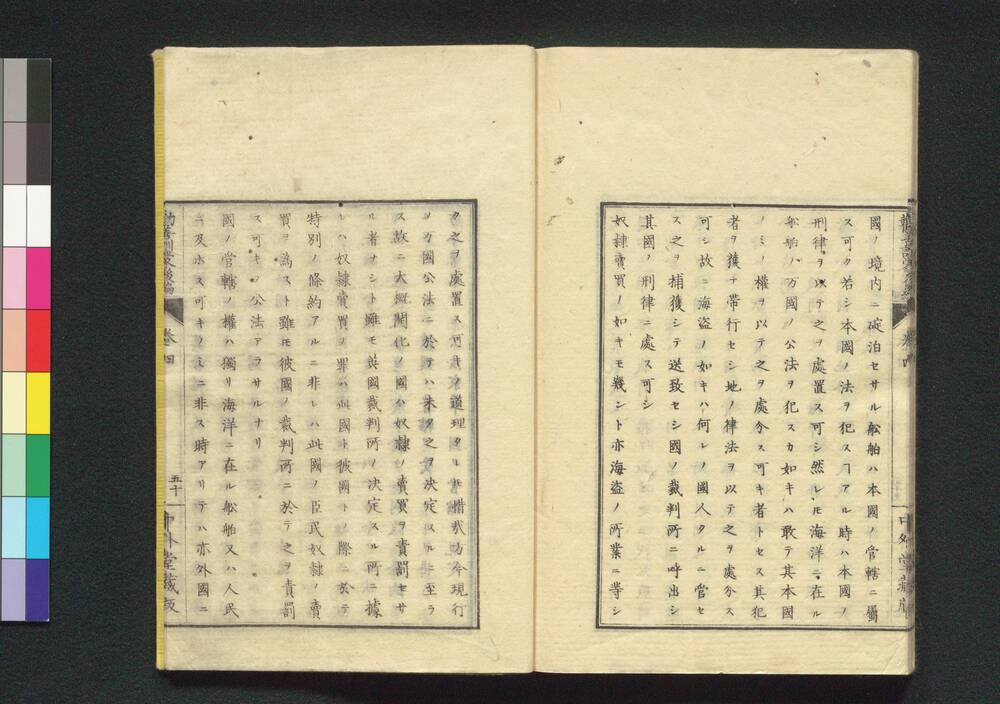 國ノ境内ニ碇泊セサル舩舶ハ本國ノ管轄ニ屬
ス可ク若シ本國ノ法ヲ犯スヿアル時ハ本國ノ
刑律ヲ以テ之ヲ處置ス可シ然レ𪜈海洋ニ在ル
舩舶ノ万國ノ公法ヲ犯スカ如キハ敢テ其本國
ノミノ權ヲ以テ之ヲ處分ス可キ者トセス其犯
者ヲ獲テ帯行セシ地ノ律法ヲ以テ之ヲ處分ス
可シ故ニ海盗ノ如キハ何レノ國人タルニ管セ
ス之ヲ捕獲シテ送致セシ國ノ裁判所ニ呼出シ
其國ノ刑律ニ處ス可シ
奴隷賣買ノ如キモ幾ント亦海盗ノ所業ニ等シ
卷四
中外堂藏版
ク之ヲ處置ス可キノ道理タレ𪜈惜哉方今現行
ノ万國公法ニ於テハ未タ之ヲ決定スルニ至ラ
ス故ニ大概開化ノ國ハ奴隷ノ賣買ヲ責罰セサ
ル者ナシト雖モ英國裁判所ノ決定スル所ニ據
レハ奴隷賣買ノ罪ハ此國ト彼國トノ際ニ於テ
特別ノ條約アルニ非レハ此國ノ臣民奴隷ノ賣
買ヲ為スト雖モ彼國ノ裁判所ニ於テ之ヲ責罰
ス可キノ公法アラサルナリ
國ノ管轄ノ權ハ獨リ海洋ニ在ル舩舶又ハ人民
ニ及ホス可キノミニ非ス時アリテハ亦外國ニ
卷四
五十
中外堂藏版